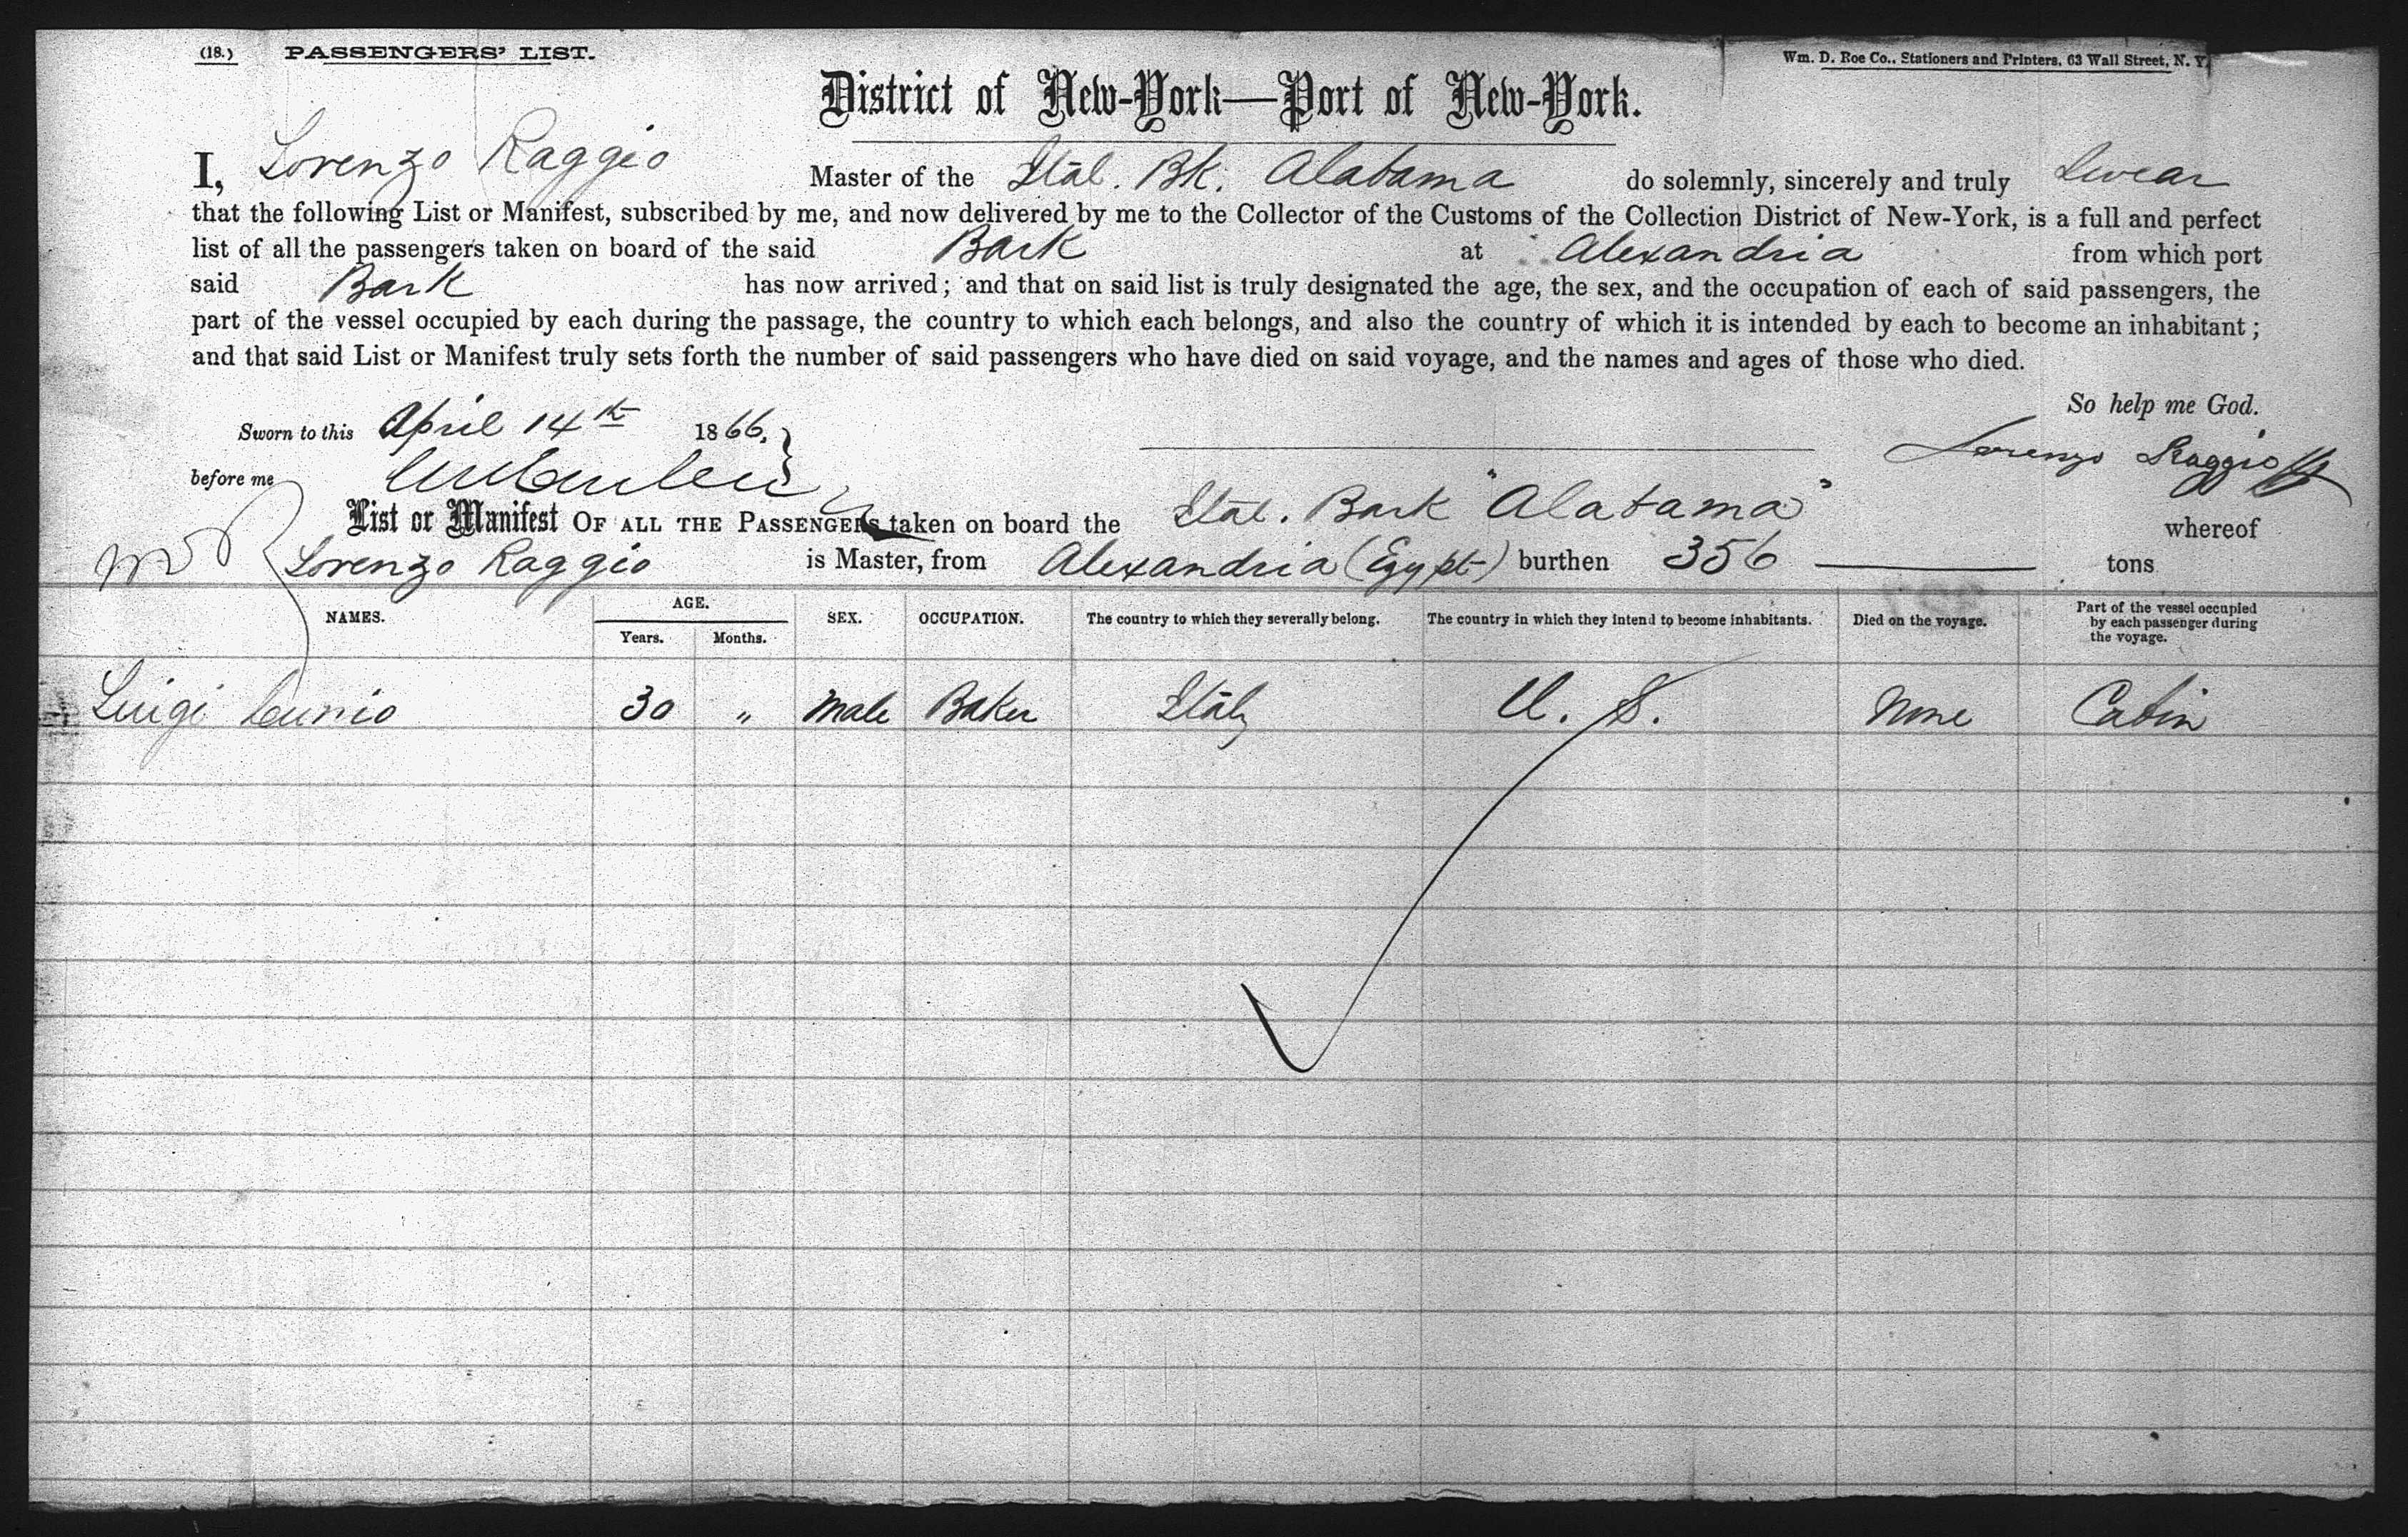 (18.) PASSENGERS' LIST. Wm. D. Roe Co., Stationers and Printers, 63 Wall Street, N. Y.
District of New-York—Port of New-York.
I, Lorenzo Raggio Master of the Ital. Bk. Alabama do solemnly, sincerely and truly Swear
that the following List or Manifest, subscribed by me, and now delivered by me to the Collector of the Customs of the Collection District of New-York, is a full and perfect
list of all the passengers taken on board of the said Bark at Alexandria from which port
said Bark has now arrived; and that on said list is truly designated the age, the sex, and the occupation of each of said passengers, the
part of the vessel occupied by each during the passage, the country to which each belongs, and also the country of which it is intended by each to become an inhabitant;
and that said List or Manifest truly sets forth the number of said passengers who have died on said voyage, and the names and ages of those who died.
So help me God.
Sworn to this April 14th 1866, Lorenzo Raggio
before me
List or Manifest OF ALL THE PASSENGERS taken on board the Ital. Bark "Alabama" whereof
Lorenzo Raggio is Master, from Alexandria (Egypt) burthen 356 tons
NAMES. AGE. Years. Months. SEX. OCCUPATION. The country to which they severally belong. The country in which they intend to become inhabitants. Died on the voyage. Part of the vessel occupied by each passenger during the voyage.
Luigi Cunio 30 " Male Baker Italy U. S. None Cabin